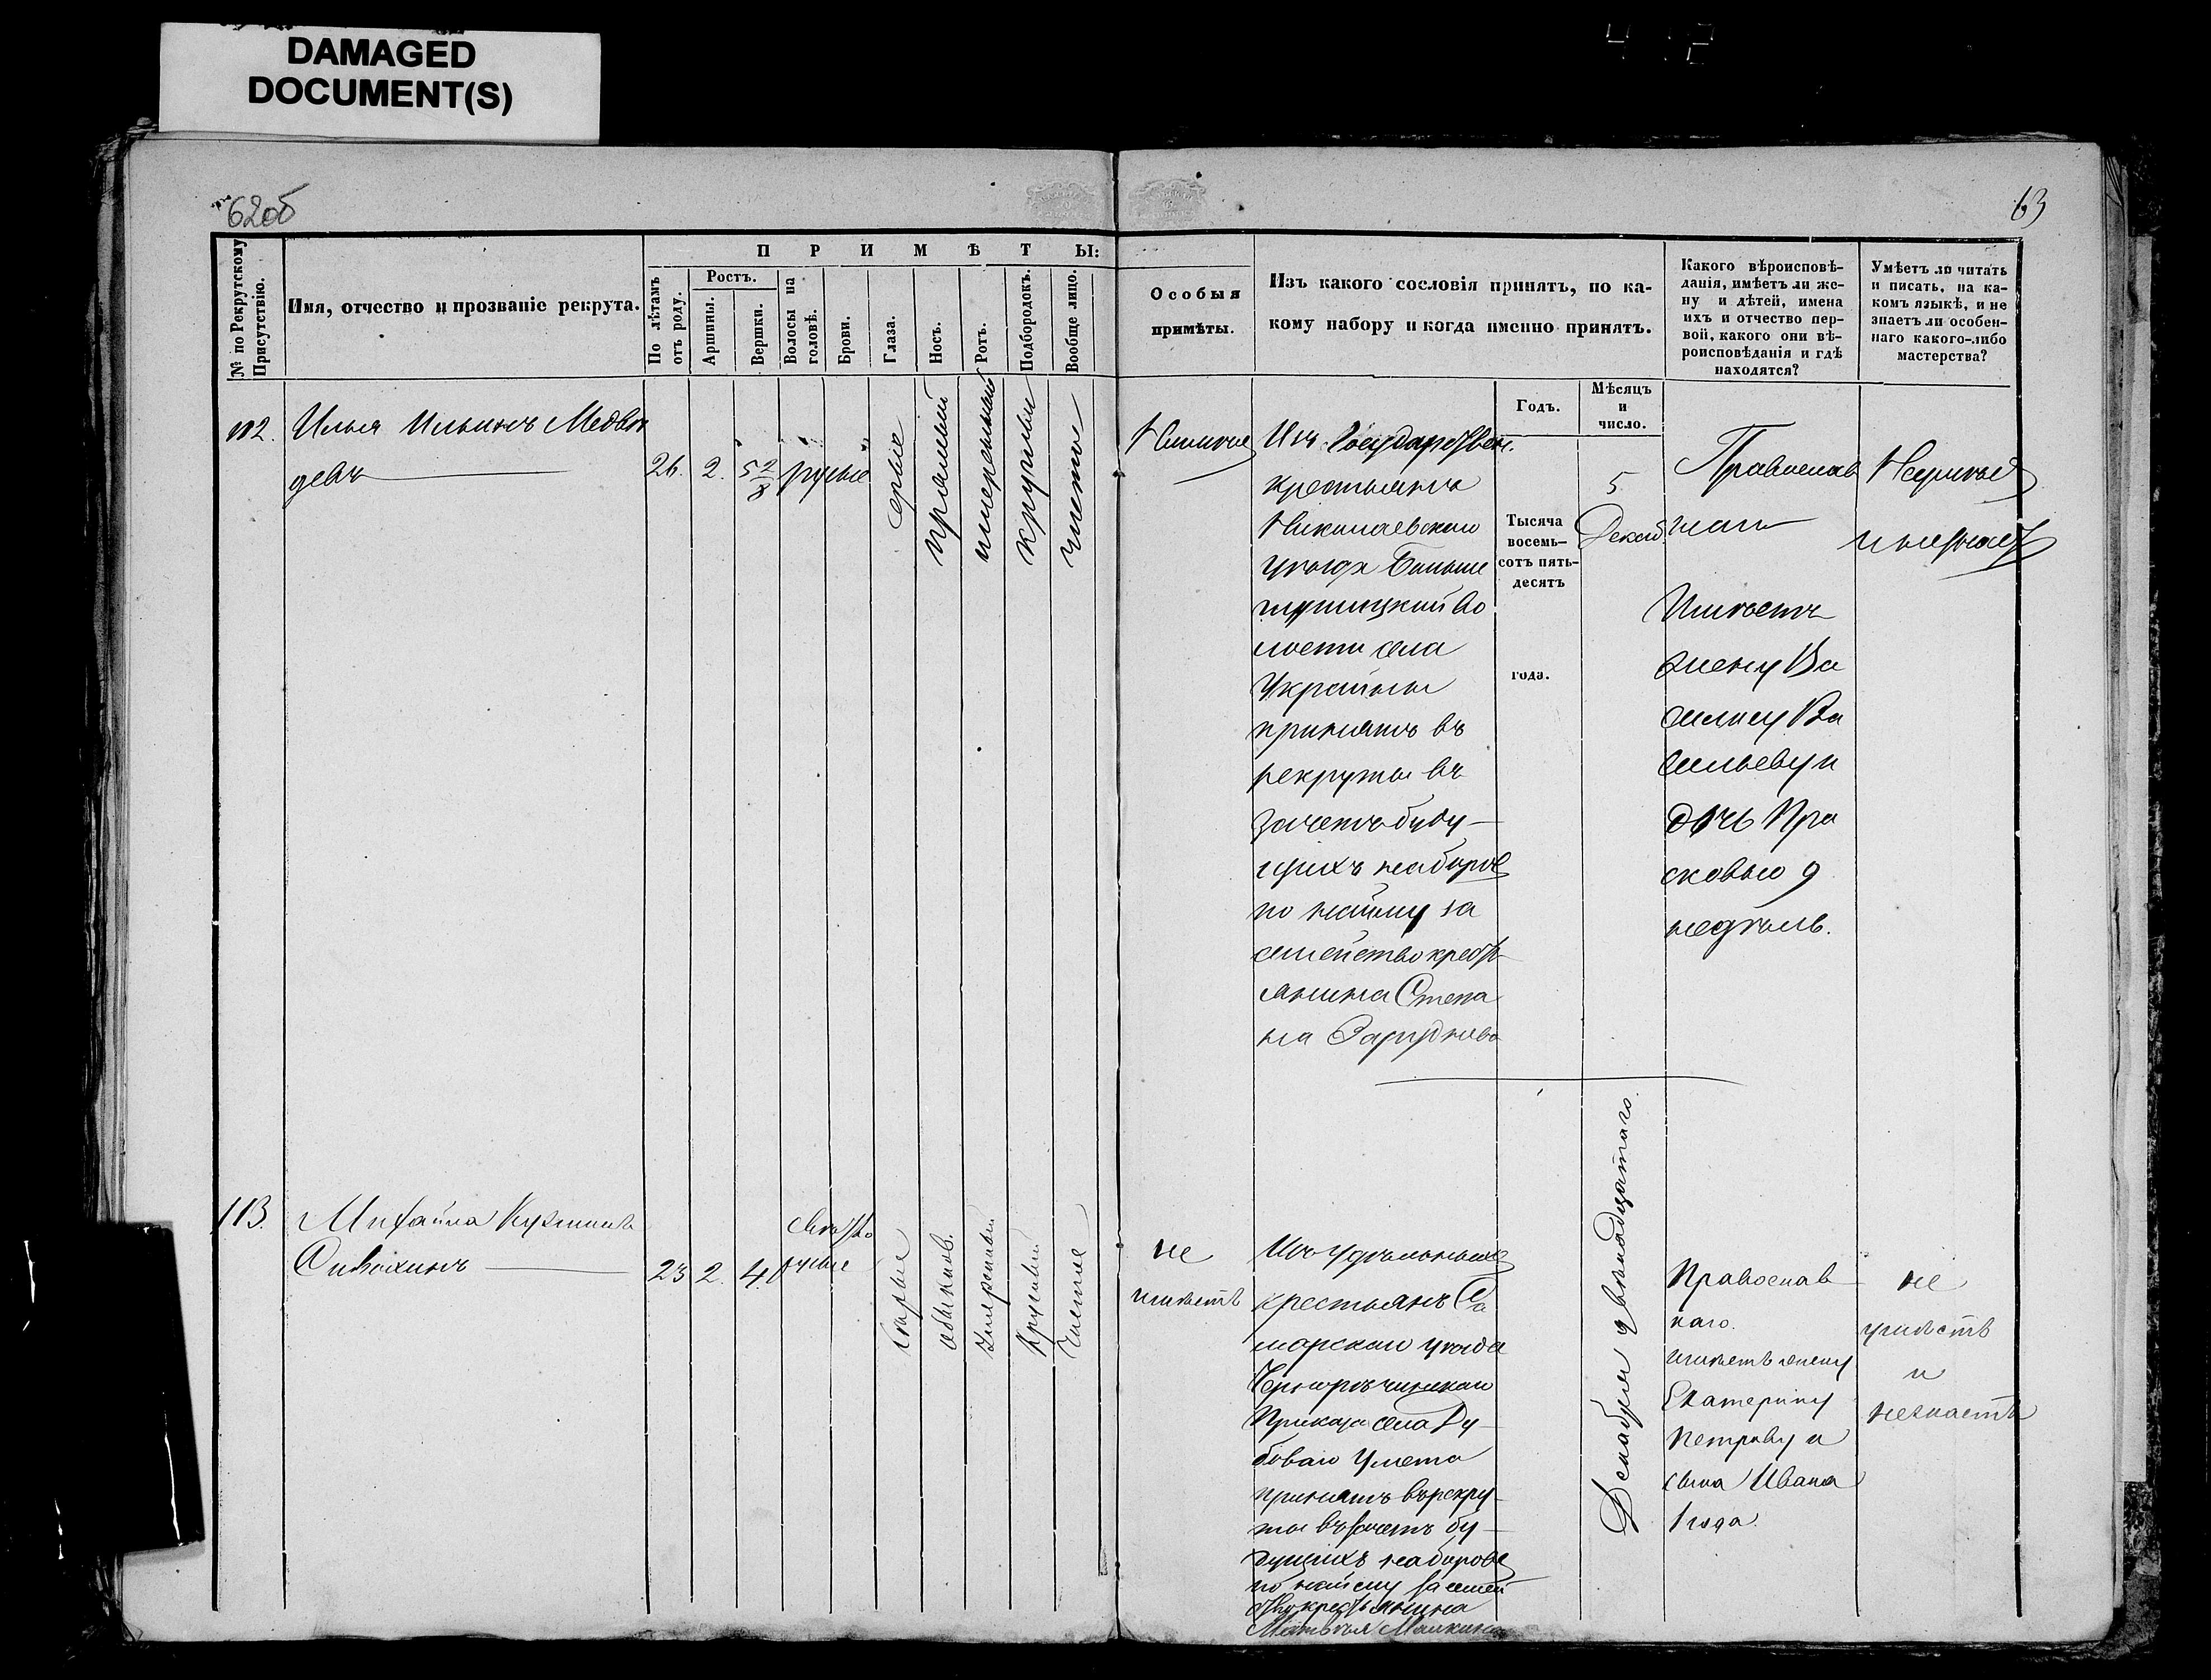 DAMAGED
DOCUMENT(S)
62об
63
П Р И М Ѣ Т Ы:
№ по Рекрутскому
Присутствію.
Имя, отчество и прозваніе рекрута.
По лѣтамъ
отъ роду.
Ростъ.
Аршины.
Вершки.
Волосы на
головѣ.
Брови.
Глаза.
Носъ.
Ротъ.
Подбородокъ.
Вообще лицо.
Особыя
примѣты.
Изъ какого сословія принятъ, по ка-
кому набору и когда именно принятъ.
Годъ.
Мѣсяцъ
и
число.
Какого вѣроисповѣ-
данія, имѣетъ ли же-
ну и дѣтей, имена
ихъ и отчество пер-
вой, какого они вѣ-
роисповѣданія и гдѣ
находятся?
Умѣетъ ли читать
и писать, на ка-
комъ языкѣ, и не
знаетъ ли особен-
наго какого-либо
мастерства?
112.
Илья Ильинъ Медвѣ
девъ
26.
2.
5 2/8
русые
серые
прямый
умеренный
круглый
чистое
Изъ Государствен.
крестьянъ
Николаевскаго
уѣзда Больше
волости села
Украины
принятъ въ
рекруты въ
зачетъ буду-
щихъ наборовъ
по найму за
семейство крест
янина Степа
на
Тысяча
восемь-
сотъ пять-
десятъ
года.
5
Декаб.
Православ
наго
Имѣетъ
жену Ва
силису Ва
сильеву и
дочь Пра
сковью 9
недѣль.
113.
Михайла Кузминъ
Сивохинъ
23
2.
4.
свѣтло
русые
карые
обыкнов.
умеренный
Круглый
Чистое
не
имѣетъ
Изъ удѣльныхъ
крестьянъ Са
марскаго уѣзда
Приказа села Ду-
боваго Умета
принятъ въ рекру-
ты въ зачетъ бу-
дущихъ наборовъ
по найму за семей
ство крестьянина
Матвѣя Малкина
Декабря двѣнадцатаго.
Православ
наго.
имѣетъ жену
Екатерину
Петрову и
сына Ивана
1 года.
не
умѣетъ
и
незнаетъ